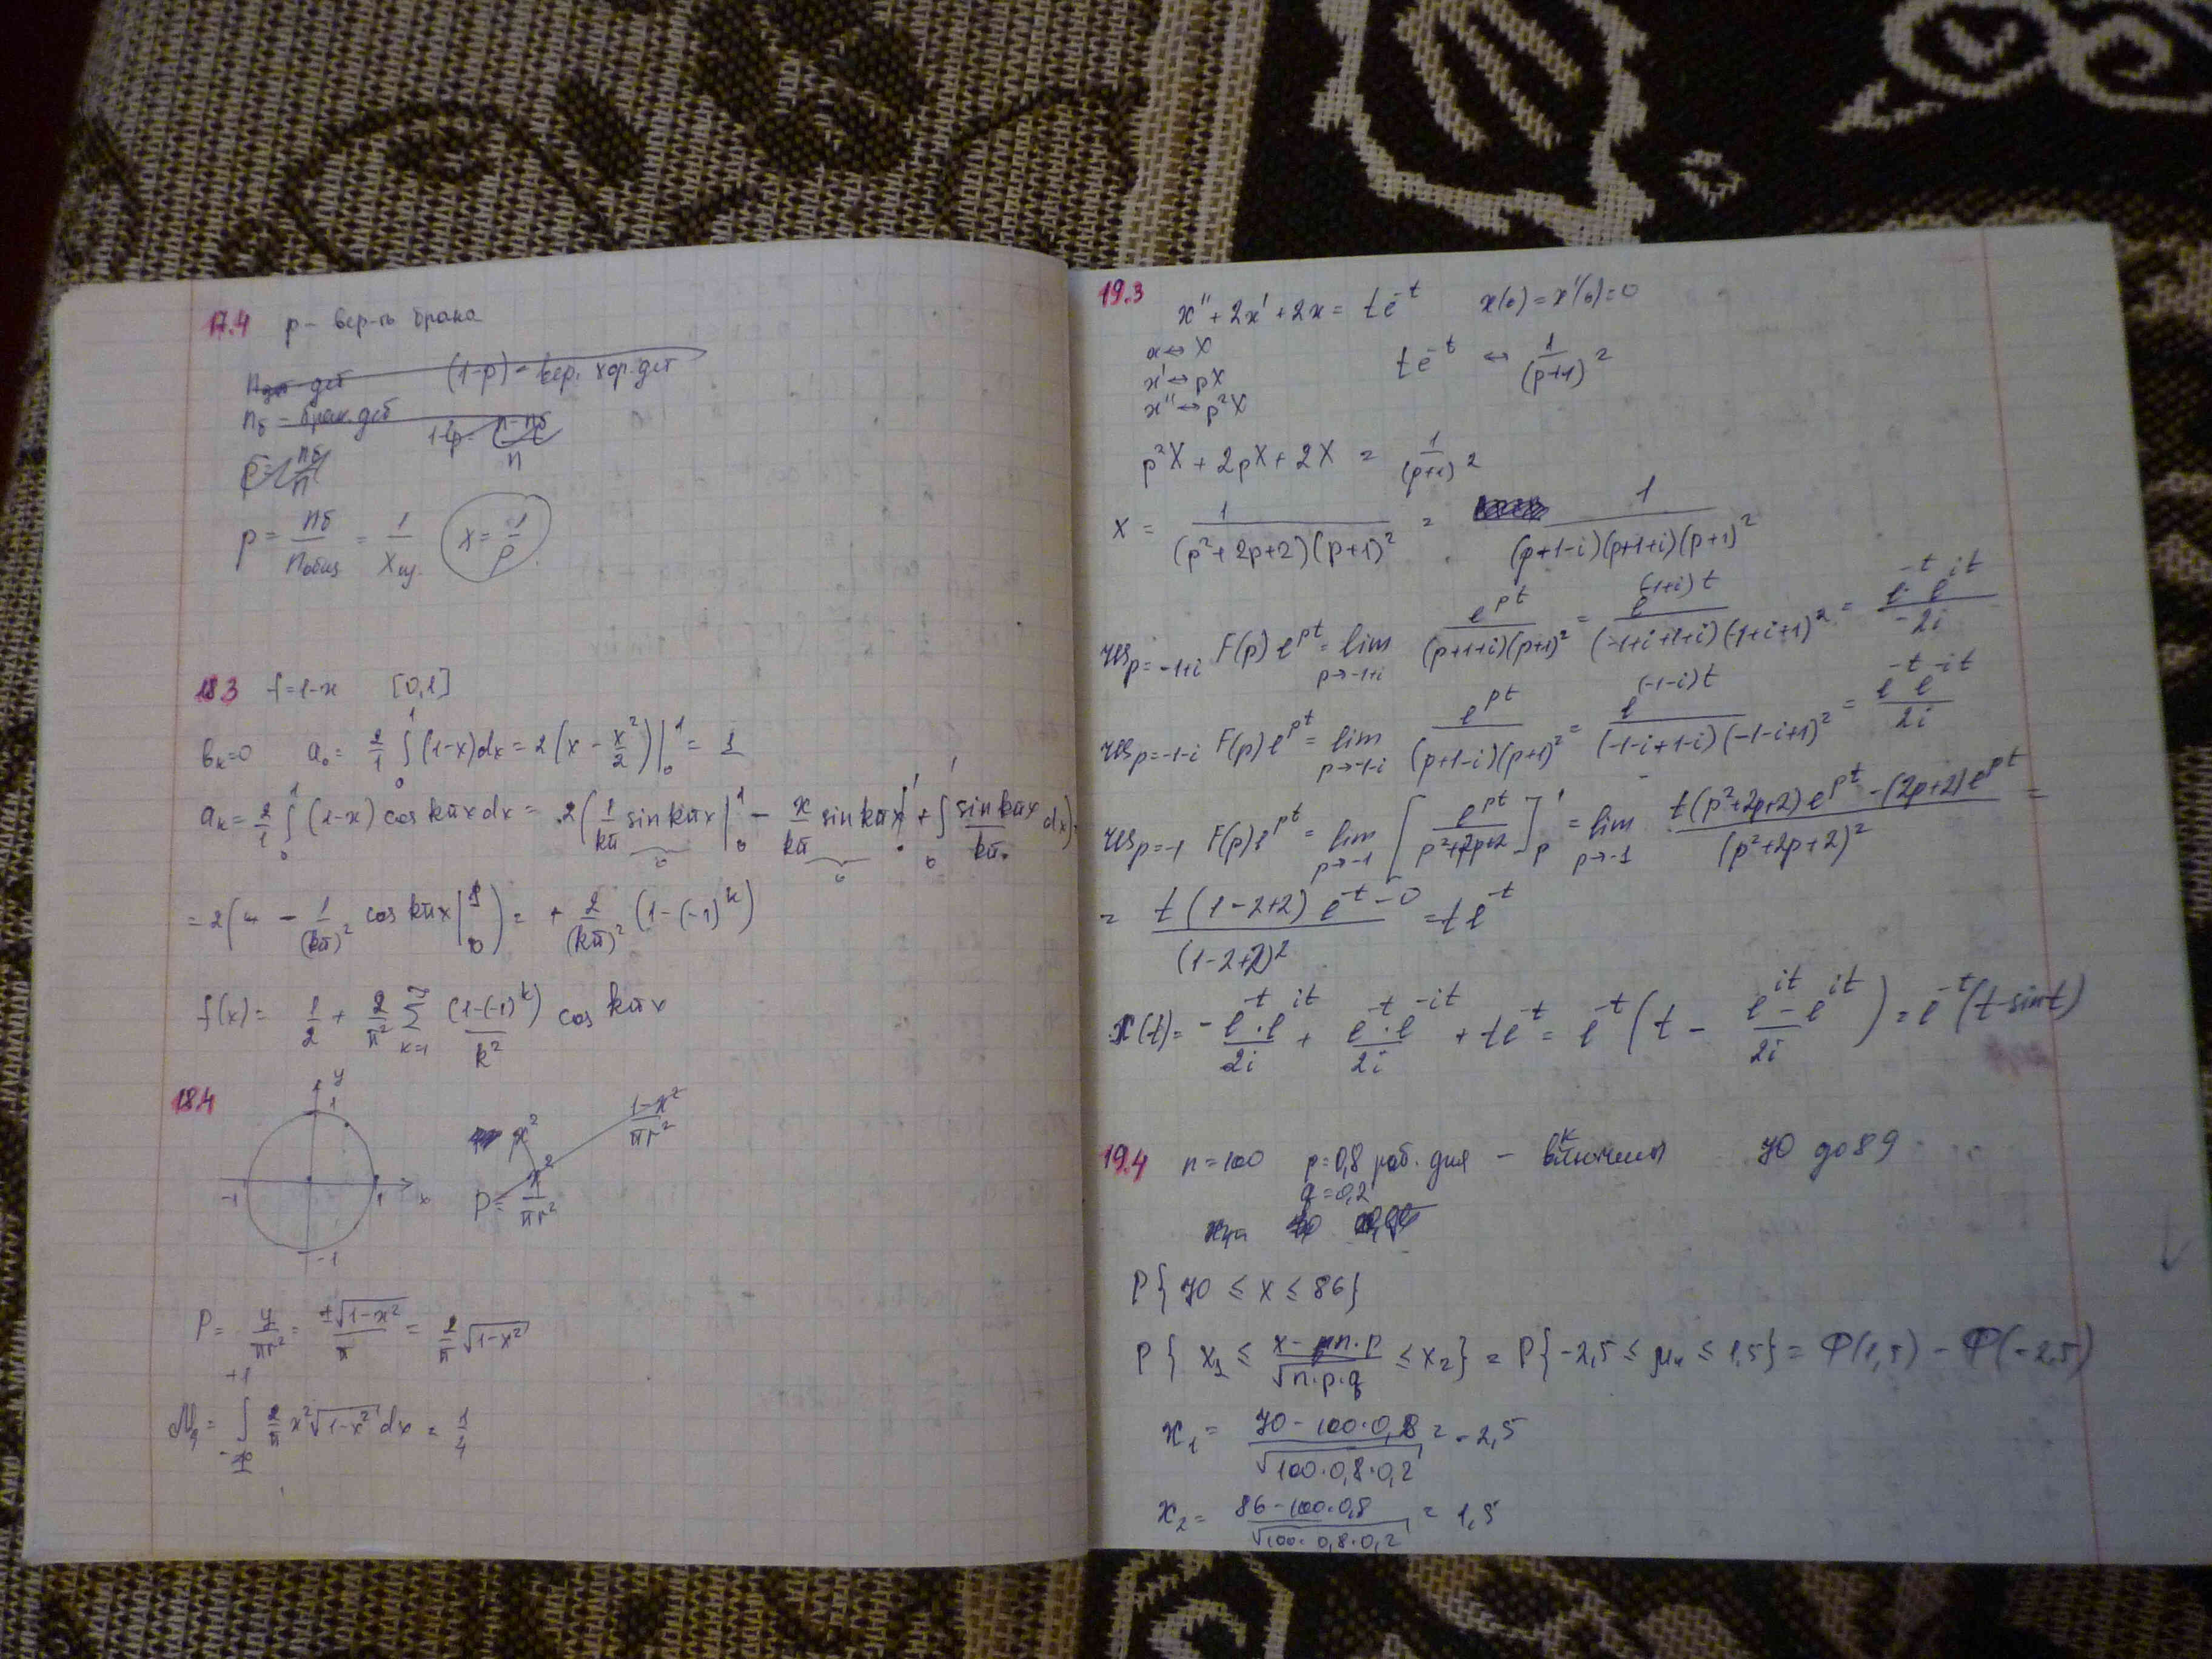 17.4 p - вер-ть брака
(1-p) = вер. хор. дет
n_б = брак. дет
1-p = (n-n_б)/n
p = n_б/n
p = n_б/n_общ = 1/x_ш. x = 1/p
18.3 f=1-x [0,1]
b_k=0 a_0 = 2/1 ∫_0^1 (1-x)dx = 2(x - x²/2)|_0^1 = 1
a_k = 2/1 ∫_0^1 (1-x) cos kπx dx = 2(1/kπ sin kπx |_0^1 - x/kπ sin kπx |_0^1 + ∫_0^1 sin kπx/kπ dx) =
= 2( - 1/(kπ)² cos kπx |_0^1) = + 2/(kπ)² (1-(-1)^k)
f(x) = 1/2 + 2/π² Σ_{k=1}^∞ (1-(-1)^k)/k² cos kπx
18.4 y 1 -1 1 x -1
x² (1-x²)/πr²
P = x²/πr²
P = y/πr² = ±√(1-x²)/π = 2/π √(1-x²)
M_q = ∫_{-1}^{+1} 2/π x² √(1-x²) dx = 1/4
19.3 x'' + 2x' + 2x = te^{-t} x(0) = x'(0) = 0
x ↔ X
x' ↔ pX
x'' ↔ p²X
te^{-t} ↔ 1/(p+1)²
p²X + 2pX + 2X = 1/(p+1)²
X = 1/((p²+2p+2)(p+1)²) = 1/((p+1-i)(p+1+i)(p+1)²)
res_{p=-1+i} F(p)e^{pt} = lim_{p→-1+i} e^{pt}/((p+1+i)(p+1)²) = e^{(-1+i)t}/((-1+i+1+i)(-1+i+1)²) = e^{-t}e^{it}/(-2i)
res_{p=-1-i} F(p)e^{pt} = lim_{p→-1-i} e^{pt}/((p+1-i)(p+1)²) = e^{(-1-i)t}/((-1-i+1-i)(-1-i+1)²) = e^{-t}e^{-it}/2i
res_{p=-1} F(p)e^{pt} = lim_{p→-1} [e^{pt}/(p²+2p+2)]'_p = lim_{p→-1} (t(p²+2p+2)e^{pt} - (2p+2)e^{pt})/(p²+2p+2)² =
= (t(1-2+2)e^{-t} - 0)/(1-2+2)² = te^{-t}
x(t) = -e^{-t}·e^{it}/2i + e^{-t}·e^{-it}/2i + te^{-t} = e^{-t}(t - (e^{it} - e^{it})/2i) = e^{-t}(t-sint)
19.4 n=100 p=0,8 раб. дня - включены 70 до 89
q=0,2
P{70 ≤ x ≤ 86}
P{x_1 ≤ (x - n·p)/√(n·p·q) ≤ x_2} = P{-2,5 ≤ μ_n ≤ 1,5} = Ф(1,5) - Ф(-2,5)
x_1 = (70 - 100·0,8)/√(100·0,8·0,2) = -2,5
x_2 = (86 - 100·0,8)/√(100·0,8·0,2) = 1,5